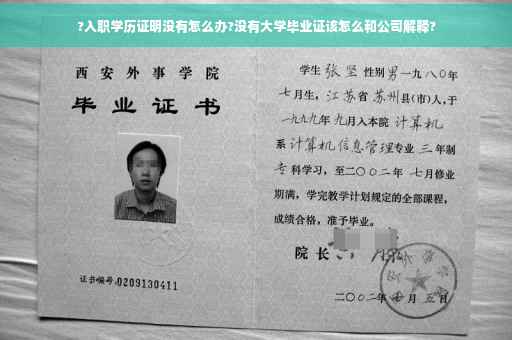 ?入职学历证明没有怎么办?没有大学毕业证该怎么和公司解释?
西安外事学院
毕业证书
证书编号:0209130411
学生 张坚 性别 男 一九八〇年
七月生, 江苏省 苏州 县(市)人,于
一九九九年 九月入本院 计算机
系 计算机信息管理 专业 三 年制
专科学习,至二〇〇二年 七月修业
期满,学完教学计划规定的全部课程,
成绩合格,准予毕业。
院长
二〇〇二年 七月 五日